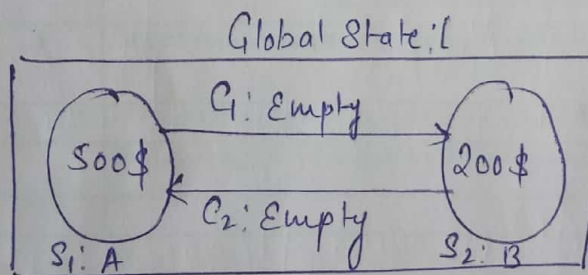 Global State:1
C1: Empty
500$
200$
C2: Empty
S1: A
S2: B